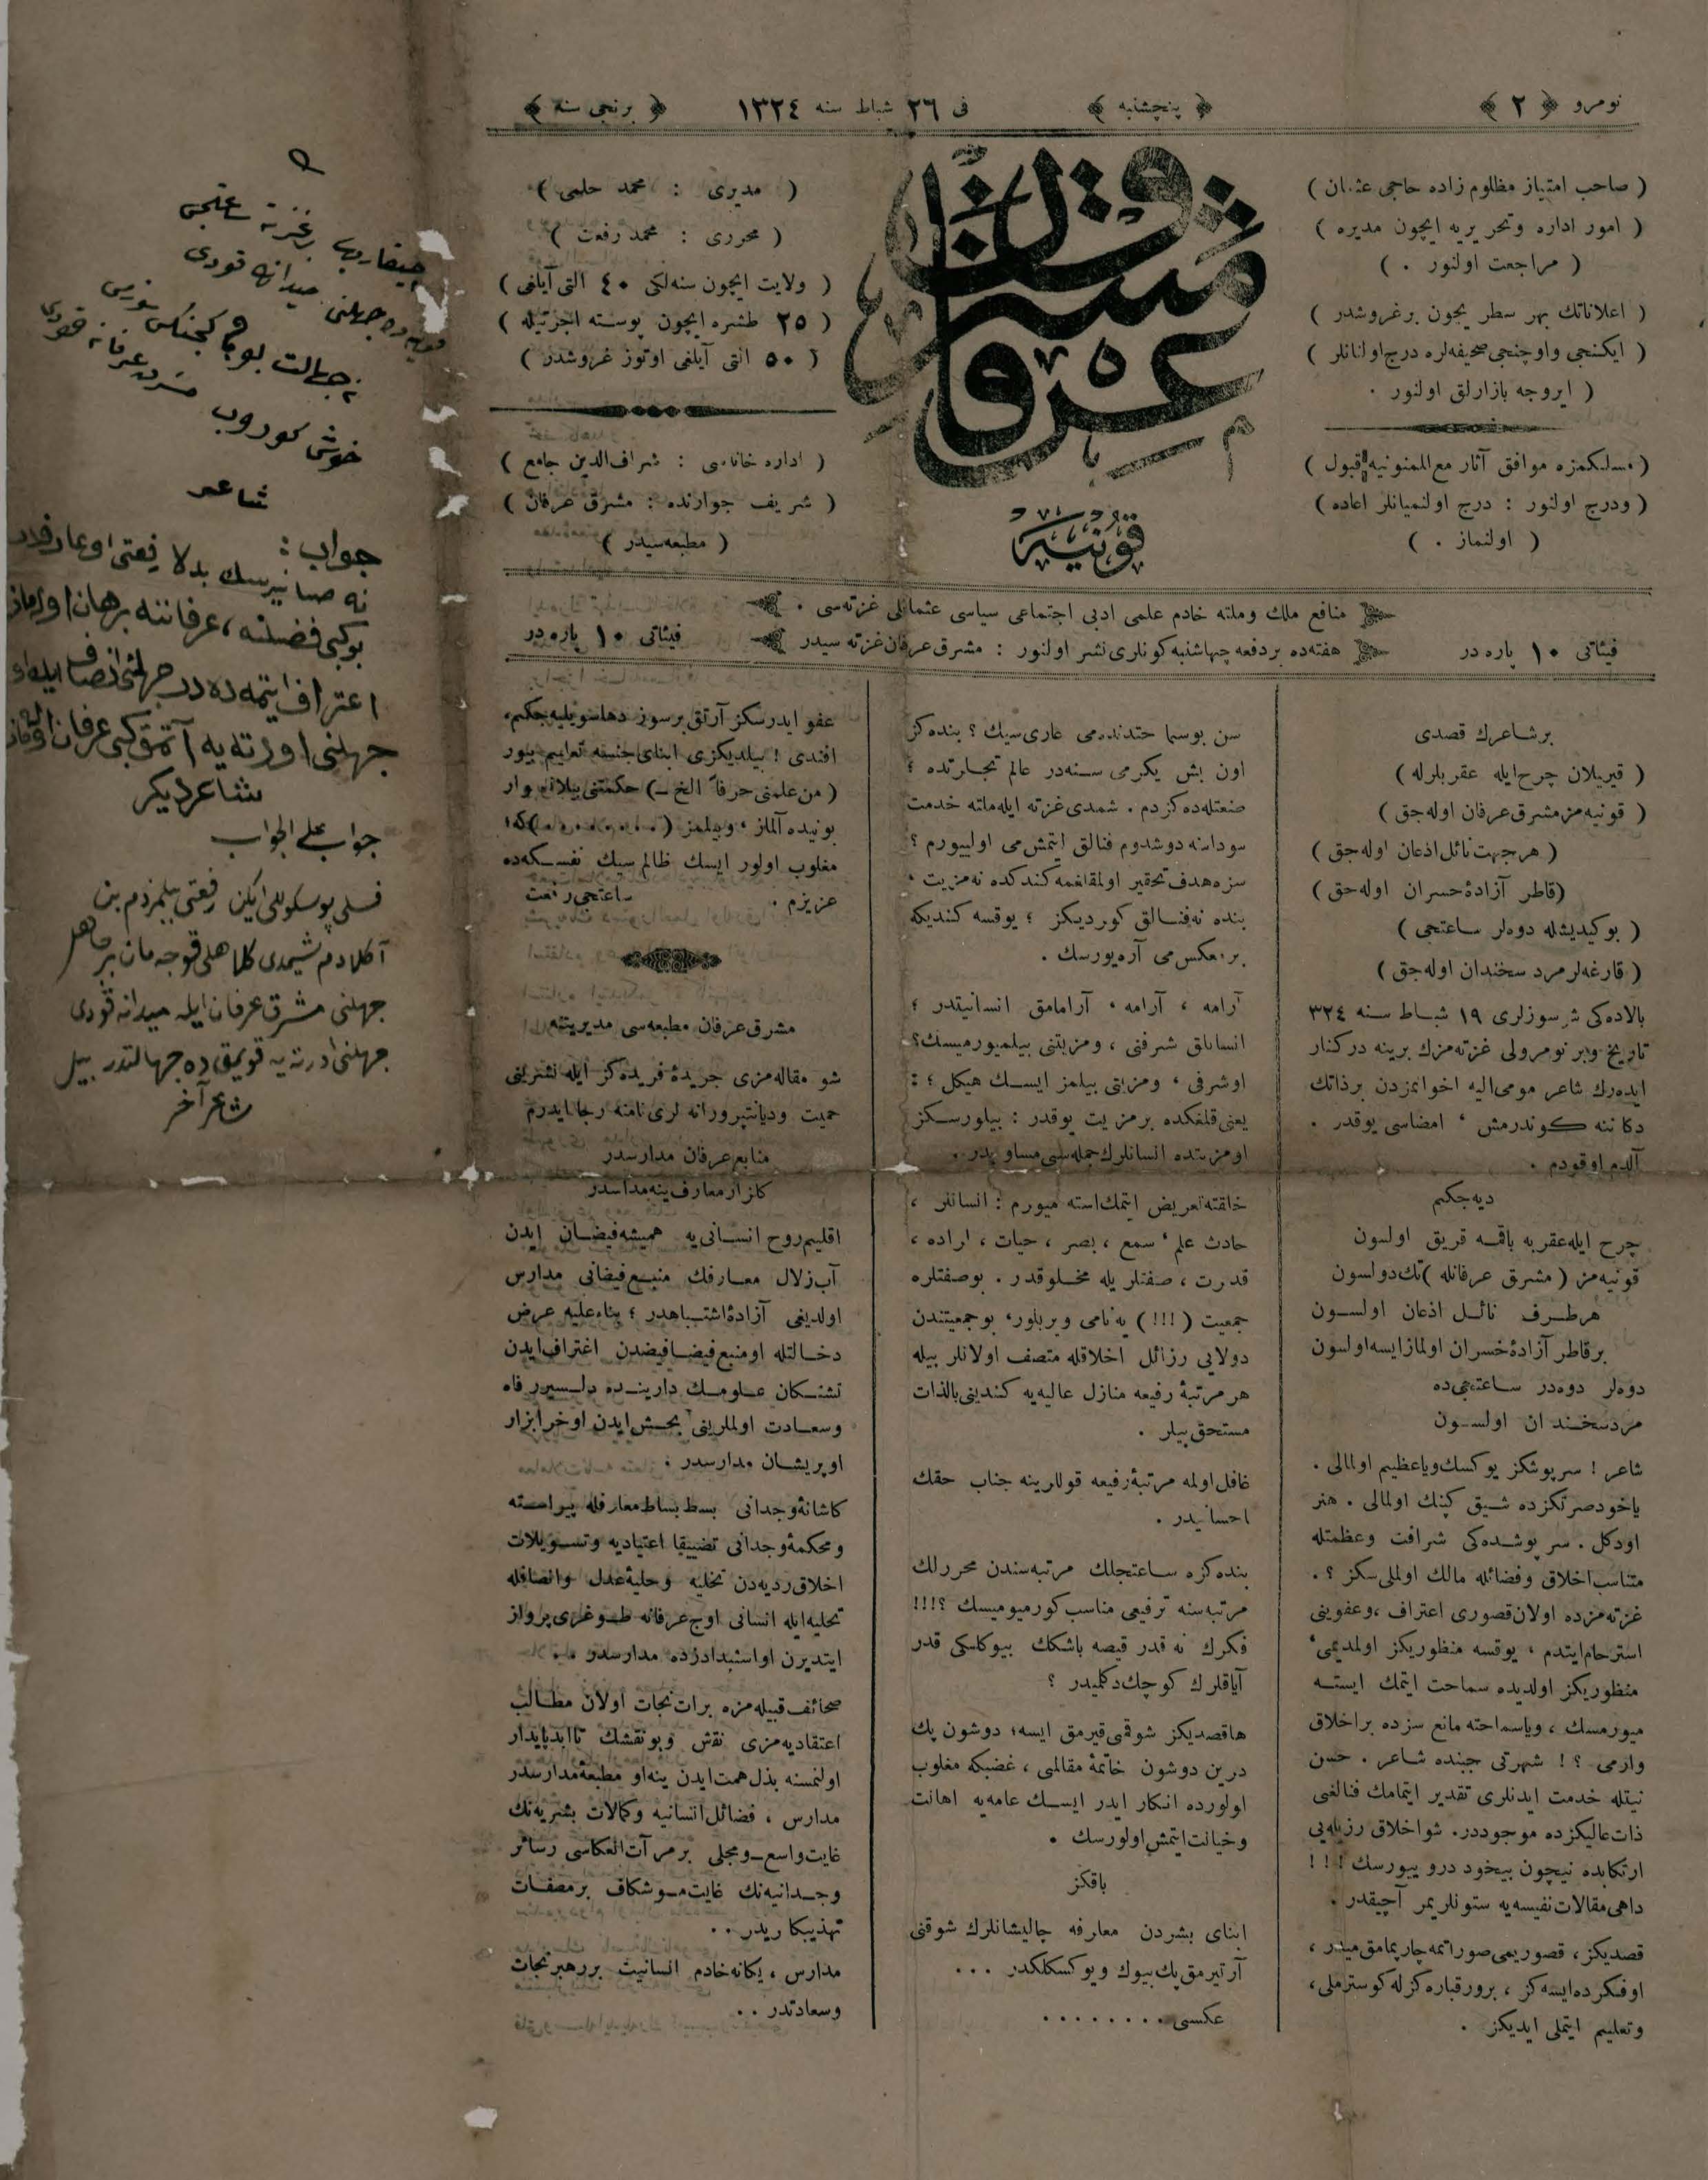 نومرو ﴿ ٢ ﴾
﴿ پنچشنبه ﴾
فی ٢٦ شباط سنه ١٣٢٤
﴿ برنجی سنه ﴾
( صاحب امتیاز مظلوم زاده حاجی عثمان )
( امور اداره وتحریریه ایچون مدیره )
( مراجعت اولنور . )
( اعلاناتك بهر سطر یچون برغروشدر )
( ایكنجی واوچنجی صحیفه لره درج اولنانلر )
( ایروجه بازارلق اولنور .
( مسلكمزه موافق آثار مع الممنونیه قبول )
( ودرج اولنور : درج اولنمیانلر اعاده )
( اولنماز . )
مشرق عرفان
قونیه
( مدیری : محمد حلمی )
( محرری : محمد رفعت )
( ولایت ایچون سنه لكی ٤٠ التی آیلغی )
( ٢٥ طشره ایچون پوسته اجرتیله )
( ٥٠ التی آیلغی اوتوز غروشدر )
( اداره خانه سی : شرف الدین جامع )
( شریف جوارنده : مشرق عرفان )
( مطبعه سیدر )
منافع ملك وملته خادم علمی ادبی اجتماعی سیاسی عثمانلی غزته سی .
فیئاتی ١٠ پاره در
هفته ده بردفعه چهارشنبه كونلری نشر اولنور : مشرق عرفان غزته سیدر
فیئاتی ١٠ پاره در
برشاعرك قصدی
( قیریلان چرح ایله عقربلرله )
( قونیه مز مشرق عرفان اوله جق )
( هرجهت نائل اذعان اوله جق )
(قاطر آزادۀ خسران اوله جق )
( بوكیدیشله دوه لر ساعتجی )
( قارغه لر مرد سخندان اوله جق )
بالاده كی شو سوزلری ١٩ شباط سنه ٣٢٤
تاریخ وبر نومرولی غزته مزك برینه دركنار
ایده رك شاعر مومی الیه اخوانمزدن برذاتك
دكاننه كوندرمش ، امضاسی یوقدر .
آلدم اوقودم .
دیه جكم
چرح ایله عقربه باقمه قریق اولسون
قونیه مز ( مشرق عرفانله ) تك دولسون
هرطرف نائل اذعان اولسون
برقاطر آزادۀ خسران اولماز ایسه اولسون
دوه لر دوه در ساعتجی ده
مردسخندان اولسون
شاعر ! سرپوشكز یوكسك ویاعظیم اولمالی .
یاخود صرتكزده شیق كپنك اولمالی . هنر
اودكل . سرپوشده كی شرافت وعظمتله
متناسب اخلاق وفضائله مالك اولملی سكز ؟ .
غزته مزده اولان قصوری اعتراف ،وعفوینی
استرحام ایتدم ، یوقسه منظوریكز اولمدیمی ،
منظوریكز اولدیده سماحت ایتمك ایسته
میورمسك ، ویاسماحته مانع سزده براخلاق
وارمی ؟ ! شهرتی جبنده شاعر . حسن
نیتله خدمت ایدنلری تقدیر ایتمامك فنالغی
ذات عالیكزده موجوددر. شو اخلاق رزیله یی
ارتكابده نیچون بیخود درو بیورسك ! ! !
داهی مقالات نفیسه یه ستونلریمز آچیقدر .
قصدیكز ، قصوریمی صوراتمه چارپمامق میدر ،
اوفكرده ایسه كز ، برورقپاره كزله كوسترملی ،
وتعلیم ایتملی ایدیكز .
سن بوسما حتدنده می عاری سیك ؟ بنده كز
اون بش یكرمی سنه در عالم تجارتده ؛
صنعتله ده كزدم . شمدی غزته ایله ملته خدمت
سوداسنه دوشدوم فنالق ایتمش می اولییورم ؟
سزه هدف تحقیر اولمقلغمه كندكده نه مزیت ،
بنده نه فنالق كوردیكز ؛ یوقسه كندیكه
بر معكس می آره یورسك .
آرامه ، آرامه ، آرامامق انسانیتدر ؛
انسانلق شرفنی ، ومزیتنی بیلمیورمیسك؟
اوشرفی ، ومزیتی بیلمز ایسك هیكل ؛ :
یعنی قلغكده برمزیت یوقدر : بیلورسكز
اومزیتده انسانلرك جمله سی مساویدر.
خلقته تعریض ایتمك استه میورم : انسانلر ،
حادث علم ، سمع ، بصر ، حیات ، اراده ،
قدرت ، صفتلر یله مخلوقدر . بوصفتلره
جمعیت ( !!! ) یه نامی ویریلور، بوجمعیتندن
دولایی رزائل اخلاقله متصف اولانلر بیله
هر مرتبۀ رفیعه منازل عالیه یه كندینی بالذات
مستحق بیلر .
غافل اولمه مرتبۀ رفیعه قوللرینه جناب حقك
احسانیدر .
بنده كزه ساعتجلك مرتبه سندن محررلك
مرتبه سنه ترفیعی مناسب كورمیومیسك ؟!!!
فكرك نه قدر قیصه باشكك بیوكلكی قدر
آیاقلرك كوچك دكلمیدر ؟
هاقصدیكز شوقمی قیرمق ایسه؛ دوشون پك
درین دوشون خاتمۀ مقالمی ، غضبكه مغلوب
اولورده انكار ایدر ایسك عامه یه اهانت
وخیانت ایتمش اولورسك .
باقكز
ابنای بشردن معارفه چالیشانلرك شوقنی
آرتیرمق پك بیوك ویوكسكلكدر ...
عكسی ........
عفو ایدرسكز آرتق برسوز دهاسویلیه جكم.
افندی ! بیلدیكزی ابنای جنسه تعلیم بیور
(من علمنی حرفاً الخ ـ) حكمتنی بیلانه وار
بونیده آلماز ، وبیلمز ( . . . . . . . ) كه؛
مغلوب اولور ایسك ظالم سیك نفسكه ده
عزیزم . ساعتجی رفعت
مشرق عرفان مطبعه سی مدیریتنه
شو مقاله مزی جریدۀ فریده كز ایله نشرینی
حمیت ودیانتپرورانه لری نامنه رجا ایدرم
منابع عرفان مدارسدر
كلزار معارف ینه مداسدر
اقلیم روح انسانی یه همیشه فیضان ایدن
آب زلال معارفك منبع فیضانی مدارس
اولدیغی آزادۀ اشتباهدر ؛ بناء علیه عرض
دخالتله اومنبع فیضافیضدن اغتراف ایدن
تشنكان علومك دارینده دلسیر رفاه
وسعادت اولملرینی بخش ایدن اوخر ابزار
اوپریشان مدارسدر .
كاشانۀ وجدانی بسط بساط معارفله پیراسته
ومحكمۀ وجدانی تضییقا اعتیادیه وتسویلات
اخلاق ردیه دن تخلیه وحلیۀ عدل وانصافله
تحلیه ایله انسانی اوج عرفانه طوغری پرواز
ایتدیرن اواستبدادزده مدارسدر ..
صحائف قبیله مزه برات نجات اولان مطالب
اعتقادیه مزی نقش وبونقشك تاابد پایدار
اولنمسنه بذل همت ایدن ینه او مطبعۀ مدارسدر
مدارس ، فضائل انسانیه وكمالات بشریه نك
غایت واسع ـ ومجلی برمرآت انعكاسی رسائر
وجدانیه نك غایت موشكاف برمصفات
تهذیبكاریدر ..
مدارس ، یكانه خادم انسانیت بررهبر نجات
وسعادتدر ..
میدانه قودی
شاعر
جواب :
نه صانیرسك بدلا رفعتی اوعارفلر
بوكبی فضلنه ، عرفاننه برهان اولماز
اعتراف ایتمه ده در جهلنی انصاف ایله او
جهلنی اورته یه آتمق كبی عرفان اولماز
شاعر دیكر
جواب علی الجواب
فسلی پوسكوللی ایكن رفعتی بیلمزدم بن
آكلادم شیمدی كلاهلی قوجه مان بر جاهل
جهلنی مشرق عرفان ایله میدانه قودی
جهلنی اورته یه قویمق ده جهالتدر بیل
شاعر آخر